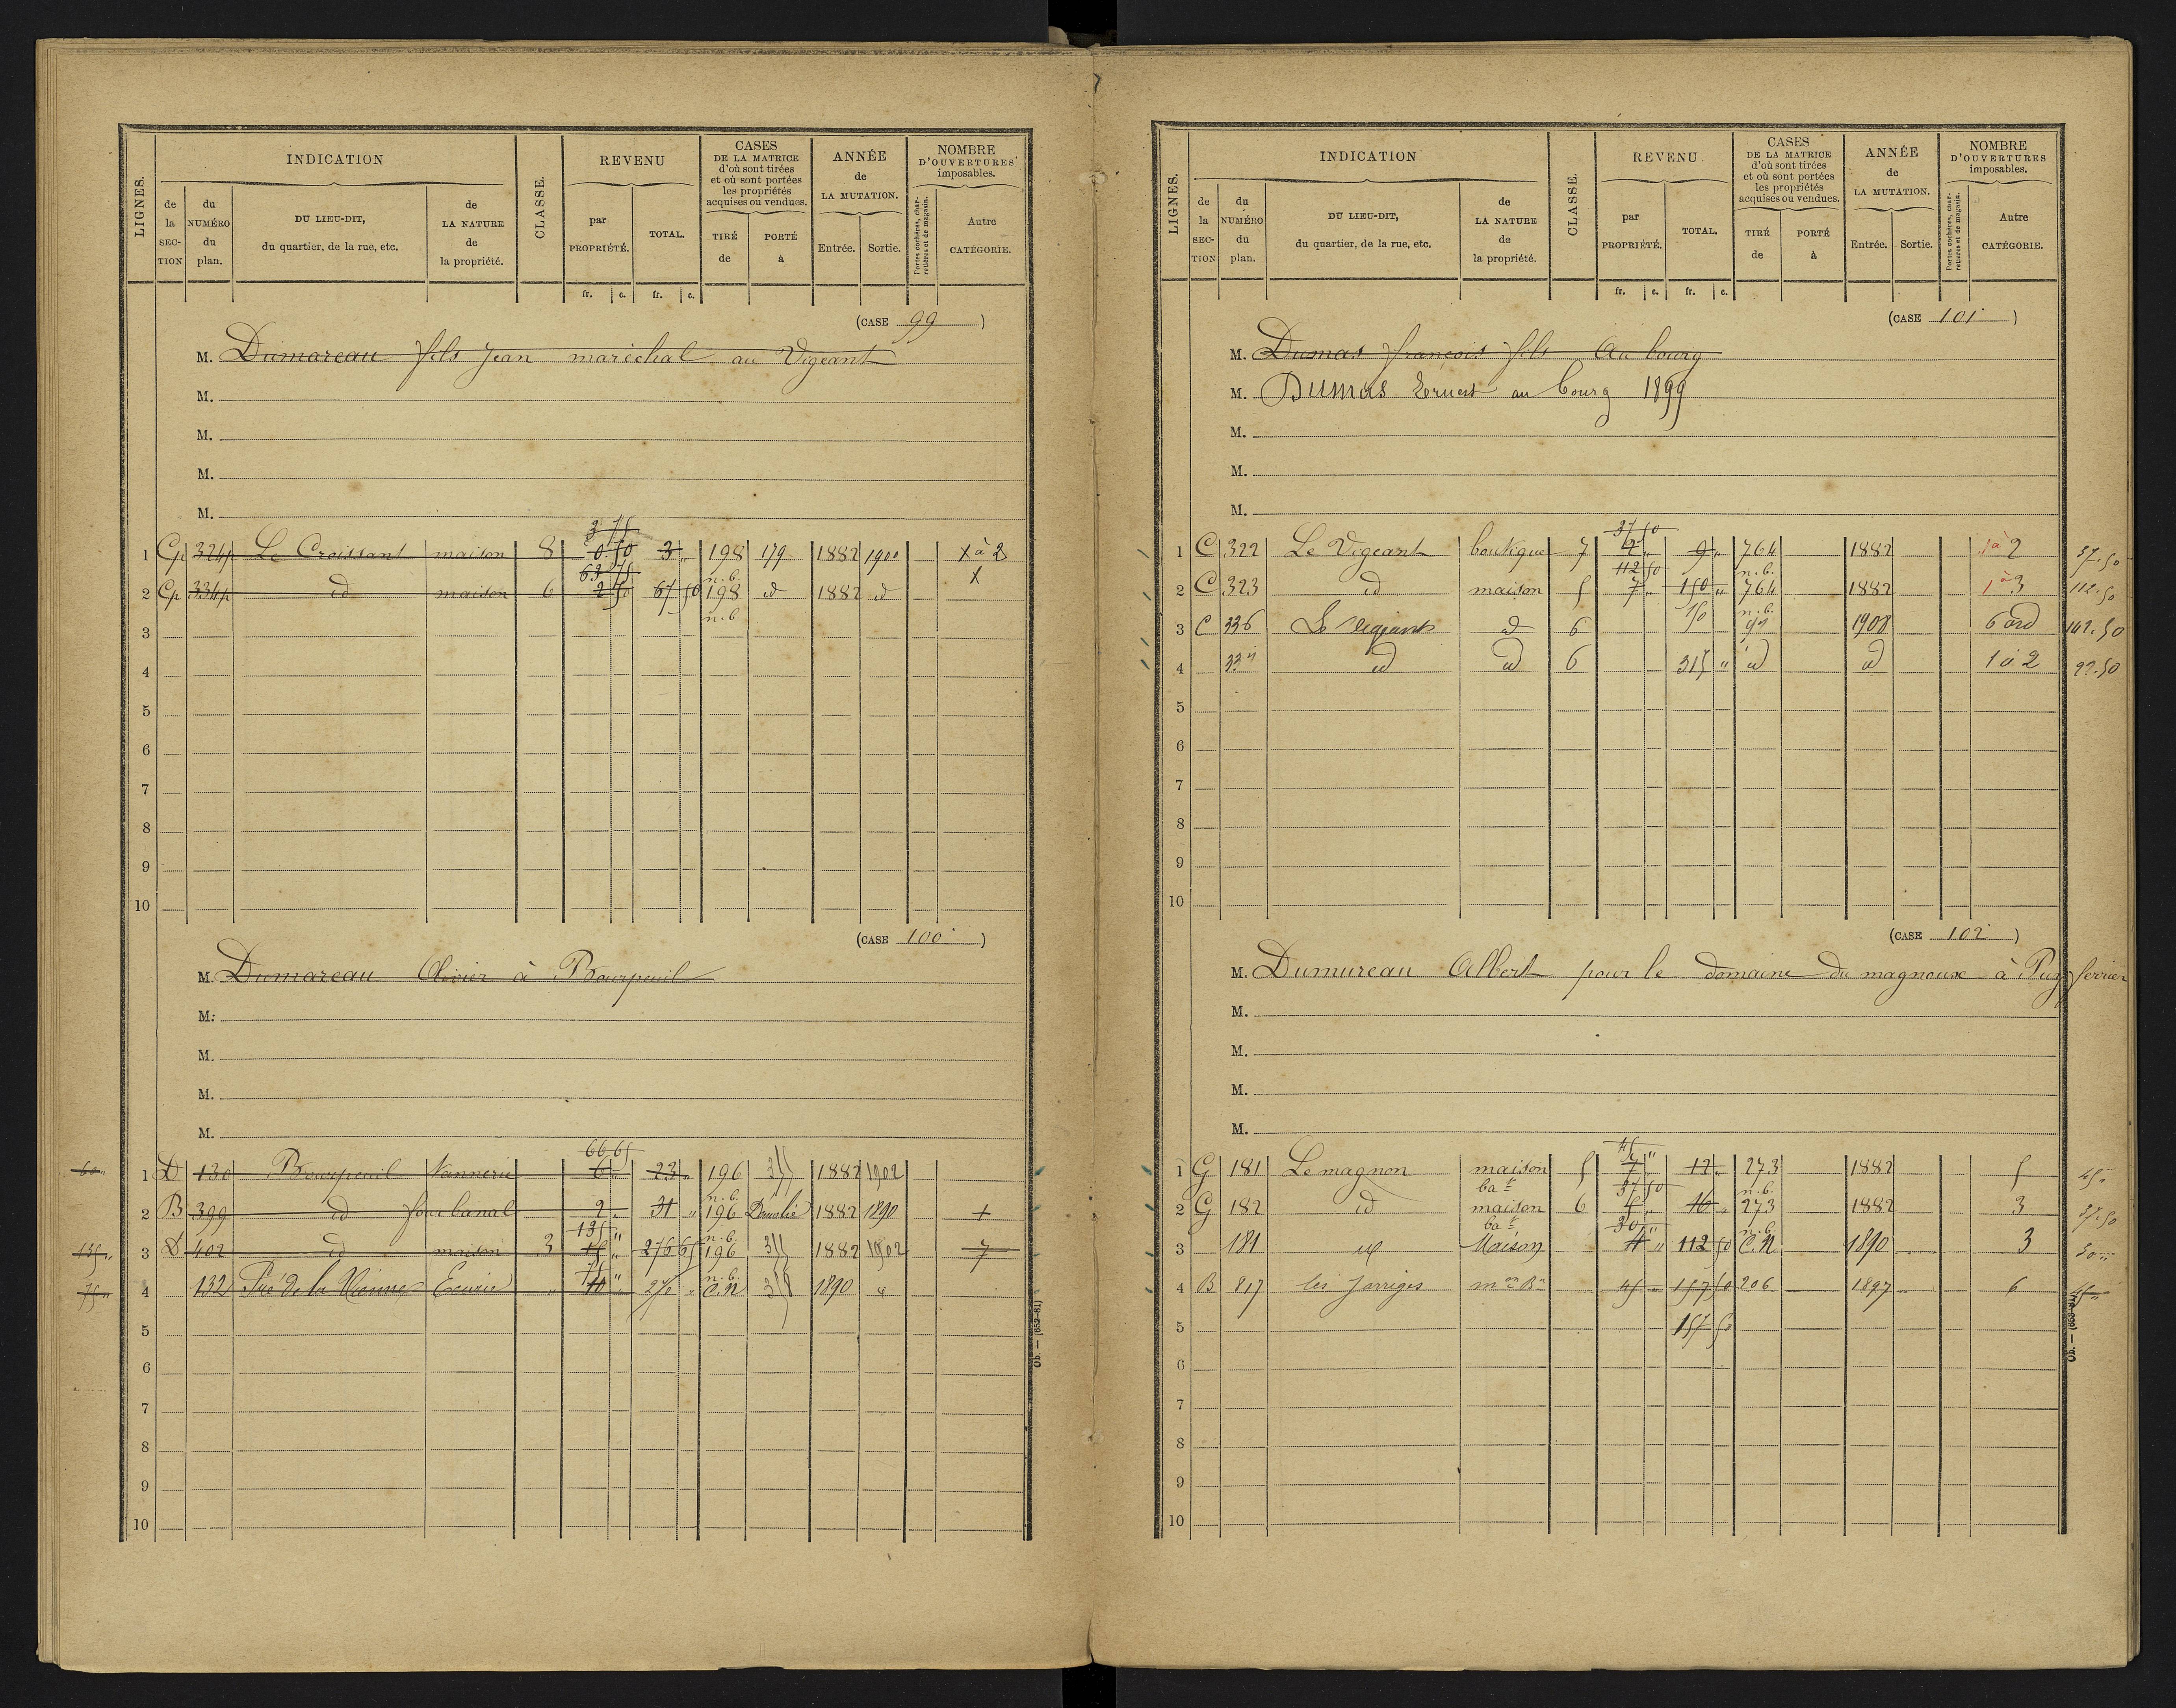 LIGNES.
INDICATION
CLASSE.
REVENU
CASES
DE LA MATRICE
d'où sont tirées
et où sont portées
les propriétés
acquises ou vendues.
ANNÉE
de
LA MUTATION.
NOMBRE
D'OUVERTURES
imposables.
de la SECTION
du NUMÉRO du plan.
DU LIEU-DIT,
du quartier, de la rue, etc.
de LA NATURE de la propriété.
par PROPRIÉTÉ.
TOTAL.
TIRÉ de
PORTÉ à
Entrée.
Sortie.
Portes cochères, charretières et de magasin.
Autre CATÉGORIE.
fr. c. fr. c.
(CASE 99)
M. Dumareau fils Jean maréchal au Vigeant
M.
M.
M.
M.
3 75
1 Cp 324p Le Croissant maison 8 0 50 3 " 198 179 1882 1900 X à 2
63 75 n.b.
2 Cp 334p id maison 6 2 50 67 50 198 id 1882 id X
n.b
3
4
5
6
7
8
9
10
(CASE 100)
M. Dumareau Olivier à Bourpeuil
M.
M.
M.
M.
66 65
60 " 1 D 130 Bourpeuil Vannerie 6 " 23 " 196 1882 1902
n.b.
2 B 399 id four banal 2 " 31 " 196 Démolie 1882 1890 +
135 " n.b.
135 " 3 D 402 id maison 3 15 " 276 65 196 1882 1902 7
75 " n.b.
75 " 4 132 Pré de la Vienne Ecurie " 10 " 270 " C.N 1890 "
5
6
7
8
9
10
Ob. — (653-81)
LIGNES.
INDICATION
CLASSE.
REVENU
CASES
DE LA MATRICE
d'où sont tirées
et où sont portées
les propriétés
acquises ou vendues.
ANNÉE
de
LA MUTATION.
NOMBRE
D'OUVERTURES
imposables.
de la SECTION
du NUMÉRO du plan.
DU LIEU-DIT,
du quartier, de la rue, etc.
de LA NATURE de la propriété.
par PROPRIÉTÉ.
TOTAL.
TIRÉ de
PORTÉ à
Entrée.
Sortie.
Portes cochères, charretières et de magasin.
Autre CATÉGORIE.
fr. c. fr. c.
(CASE 101)
M. Dumas françois fils Au bourg
M. Dumas Ernest au bourg 1899
M.
M.
M.
37 50
1 C 322 Le Vigeant boutique 7 2 " 9 " 764 1882 1 à 2 37.50
112 50 n.b.
2 C 323 id maison 5 7 " 150 " 764 1882 1 à 3 112.50
n.b.
3 C 336 Le Vigeant id 6 1908 6 ord 142.50
4 337 id id 6 315 " id id 1 à 2 22.50
5
6
7
8
9
10
(CASE 102)
M. Dumureau Albert pour le domaine du magnoux à Puy ferrier
M.
M.
M.
M.
45 "
1 G 181 Le magnon maison 5 7 " 12 " 273 1882 5 45 "
bat 37 50 n.b.
2 G 182 id maison 6 5 " 16 " 273 1882 3 37.50
bat 30 " n.b.
3 181 id Maison 4 " 112 50 C.N 1890 3 30 "
4 B 817 les Jarriges mon Bn 45 " 157 50 206 1897 6 45 "
5 157 50
6
7
8
9
10
Ob. — (653-81)